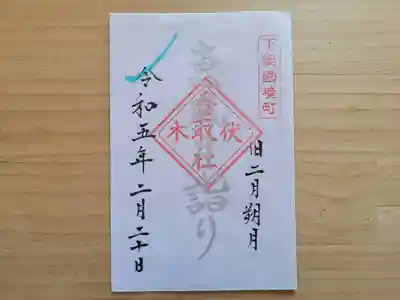 下総國境町
旧二月朔月
伏木
香取社
詣り
令和五年二月二十日